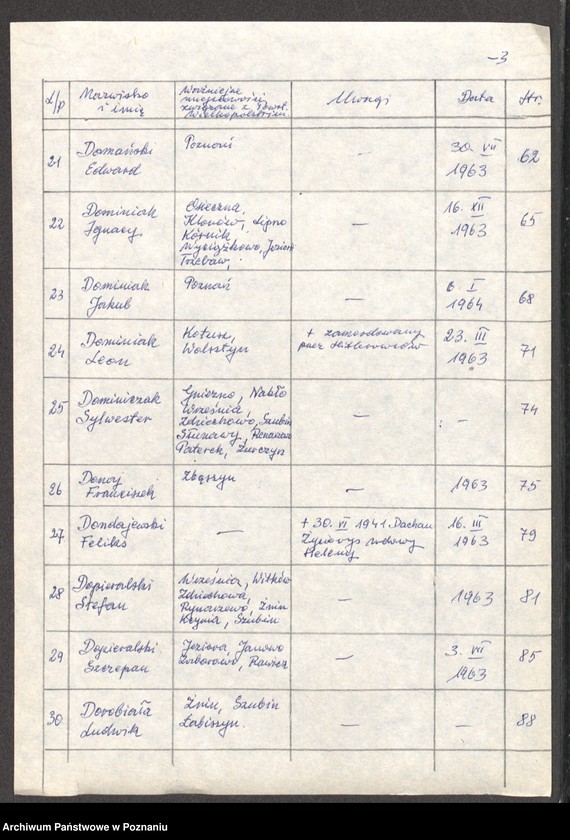 -3
L/p
Nazwisko
i imię
Ważniejsze
miejscowości
związane z Powst.
Wielkopolskim.
Uwagi
Data
Str.
21
Domański
Edward
Poznań
—
30. VII
1963
62
22
Dominiak
Ignacy
Osieczna,
Klonów, Lipno
Kórnik
Wyciążkowo, Jezior
Trzebaw,
—
16. XII
1963
65
23
Dominiak
Jakub
Poznań
—
6 I
1964
68
24
Dominiak
Leon
Kotusz,
Wolsztyn
+ zamordowany
przez Hitlerowców
23. III
1963
71
25
Dominiczak
Sylwester
Gniezno, Nakło
Września,
Zdziechowo, Szubin
Słonawy,
Paterek, Żurczyn
—
—
74
26
Donoy
Franciszek
Zbąszyn
—
1963
75
27
Dondajewski
Feliks
—
+ 30. VI 1941 Dachau
Życiorys wdowy
Heleny
16. III
1963
79
28
Dopieralski
Stefan
Września, Witków
Zdziechowa,
Rynarzewo, Żnin
Kcynia, Szubin
—
1963
81
29
Dopieralski
Szczepan
Jeziora, Janowo
Zaborowo, Rawicz
—
3. VII
1963
85
30
Dorobiała
Ludwik
Żnin, Szubin
Łabiszyn.
—
—
88
Archiwum Państwowe w Poznaniu